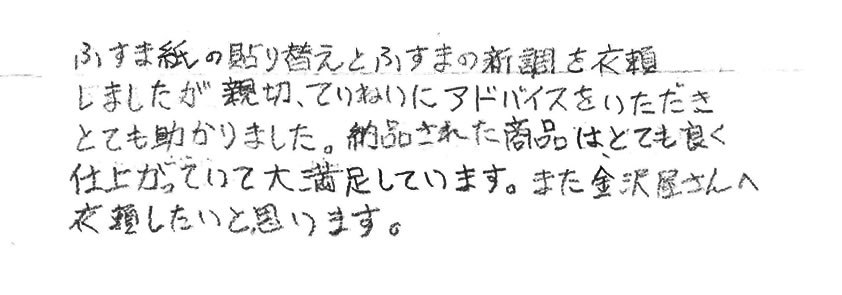 ふすま紙の貼り替えとふすまの新調を衣頼
しましたが親切、ていねいにアドバイスをいただき
とても助かりました。納品された商品は、とても良く
仕上がっていて大満足しています。また金沢屋さんへ
衣頼したいと思います。